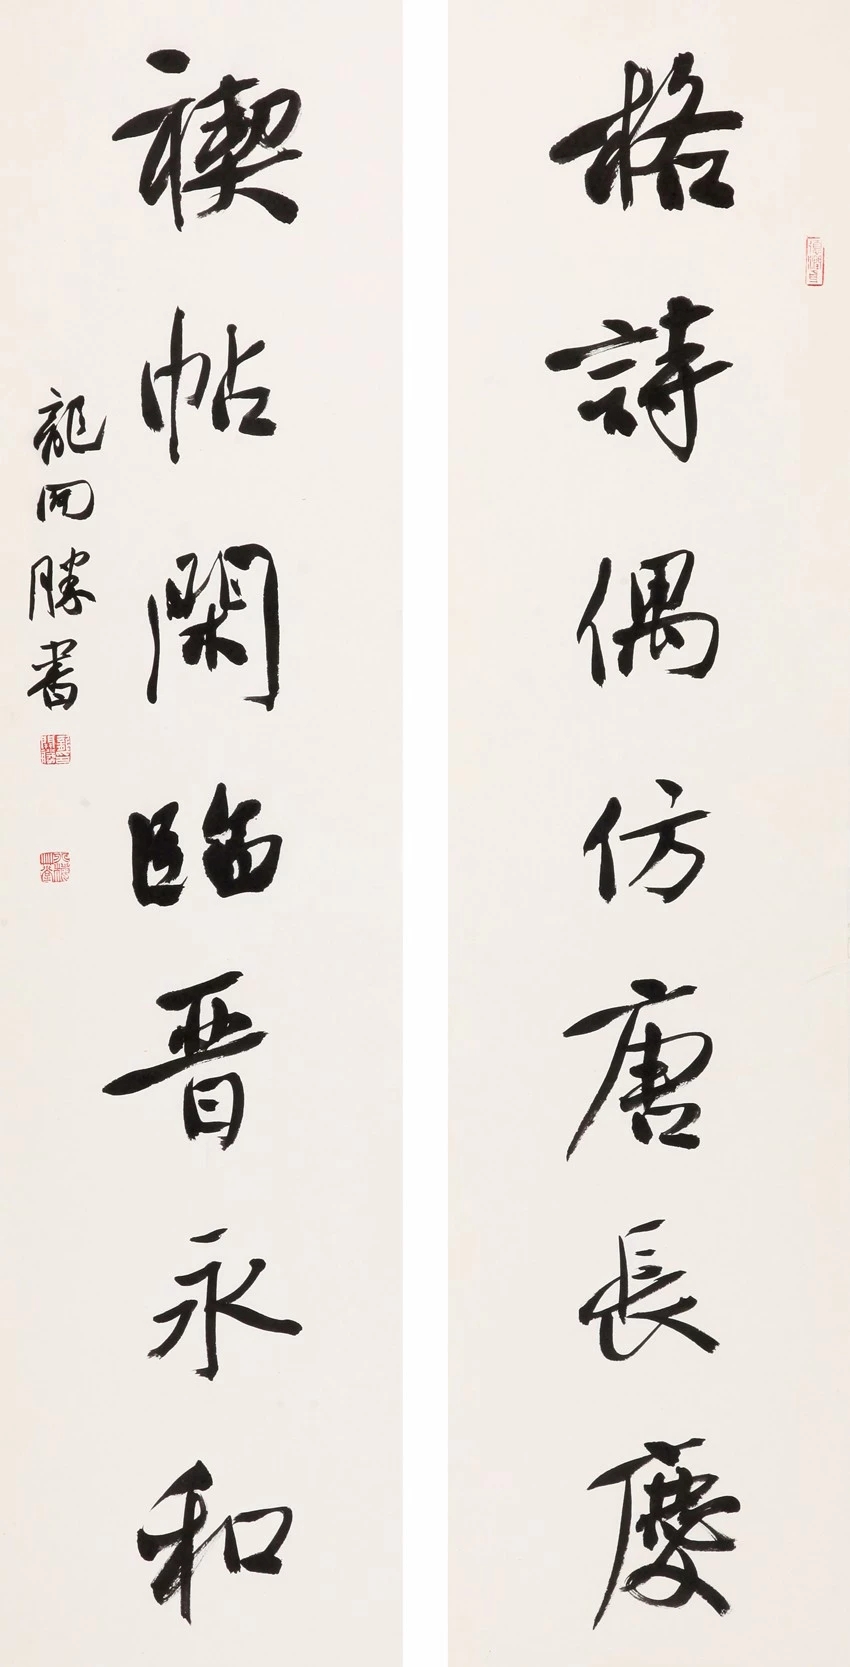 格詩偶仿唐長慶
禊帖閑臨晉永和
龍開勝書